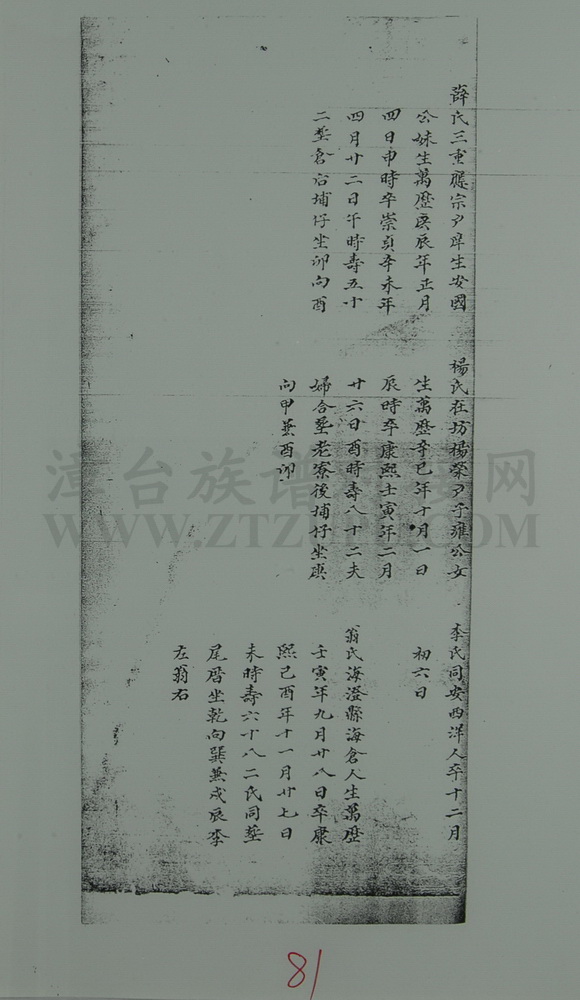 薛氏三重縣宗尹庠生安國
公妹生萬歷庚辰年正月
四日申時卒崇貞辛未年
四月廿二日午時壽五十
二塟倉宮埔仔坐卯向酉
楊氏在坊楊榮尹子雍公女
生萬歷辛巳年十月一日
辰時卒康熙壬寅年二月
廿六日酉時壽八十二夫
婦合塟老寮後埔仔坐庚
向甲兼酉卯
李氏同安西洋人卒十二月
初六日
翁氏海澄縣海倉人生萬歷
壬寅年九月廿八日卒康
熙己酉年十一月廿七日
未時壽六十八二氏同塟
尾厝坐乾向巽兼戌辰李
左翁右
漳台族谱对接网
WWW.ZTZ
81